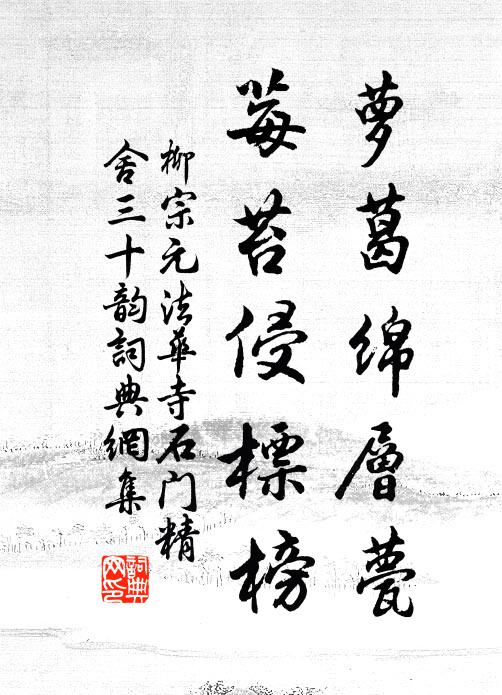 萝葛绵层甍
莓苔侵標榜
柳宗元法华寺石门精
舍三十韵词典網集
詞典网印